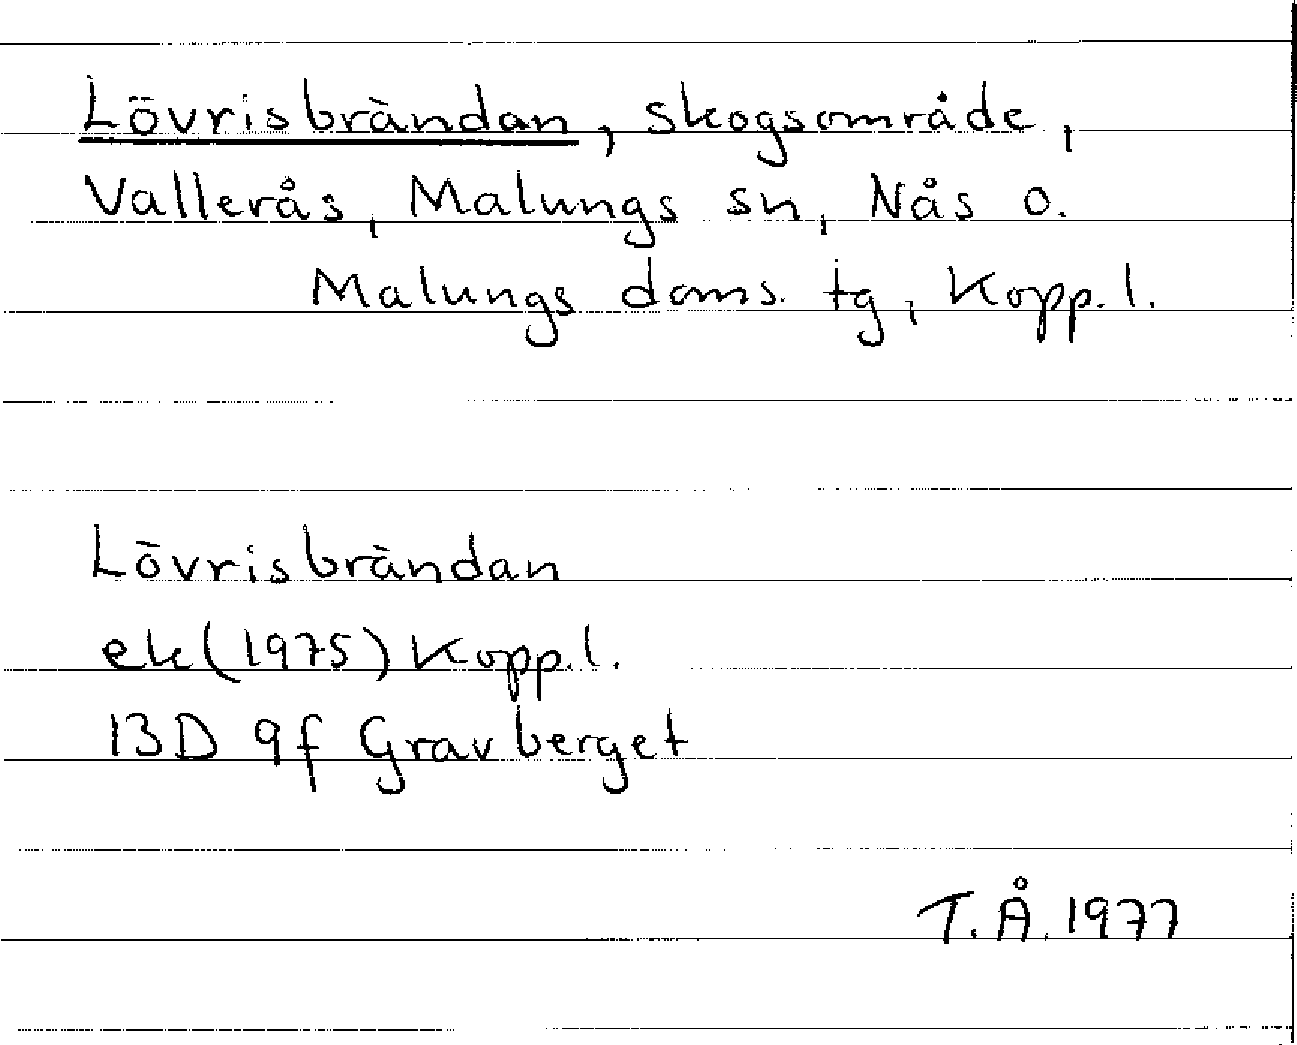 Lövrisbrändan, skogsområde,
Vallerås, Malungs sn, Nås o.
Malungs doms. tg, Kopp. l.
Lövrisbrändan
ek (1975) Kopp. l.
13D 9f Gravberget
T. Å. 1977